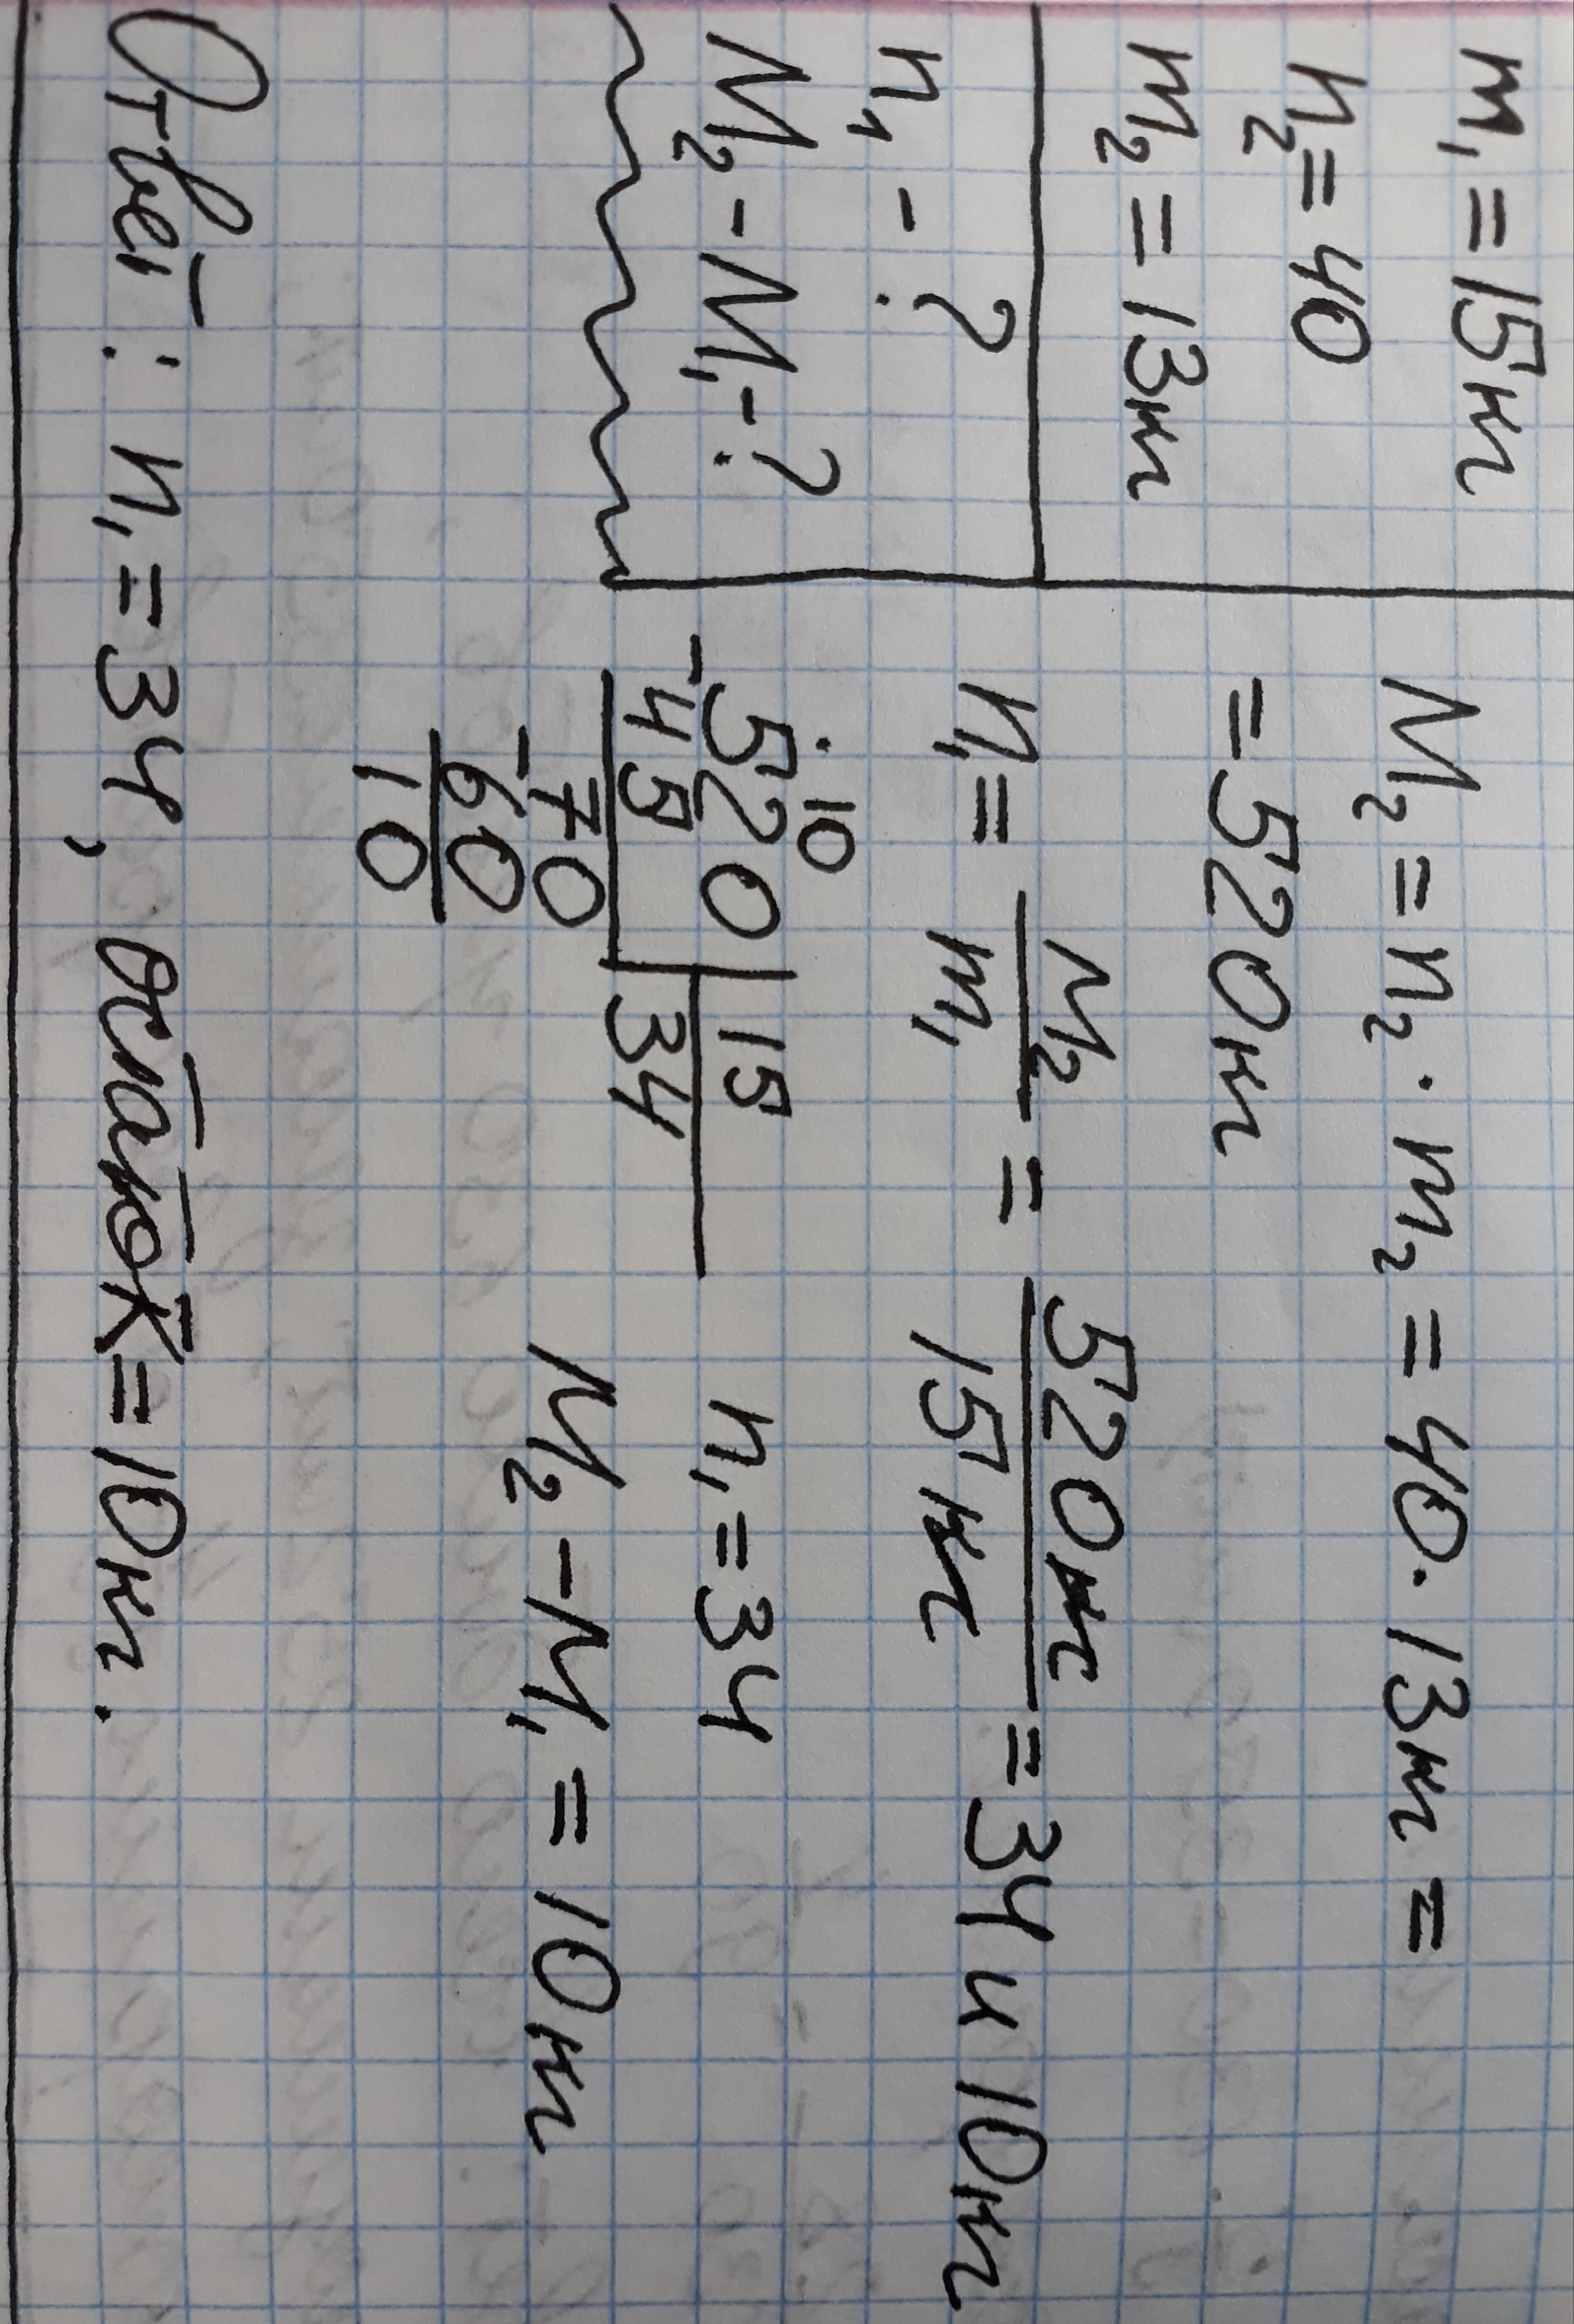 m₁ = 15кг
n₂ = 40
m₂ = 13кг
n₁ - ?
M₂ - M₁ - ?
M₂ = n₂ · m₂ = 40 · 13кг =
= 520кг
n₁ = M₂/m₁ = 520кг/15кг = 34 и 10кг
· 10
-520 | 15
45 | 34
-70
60
10
n₁ = 34
M₂ - M₁ = 10кг
Ответ: n₁ = 34, остаток = 10кг.